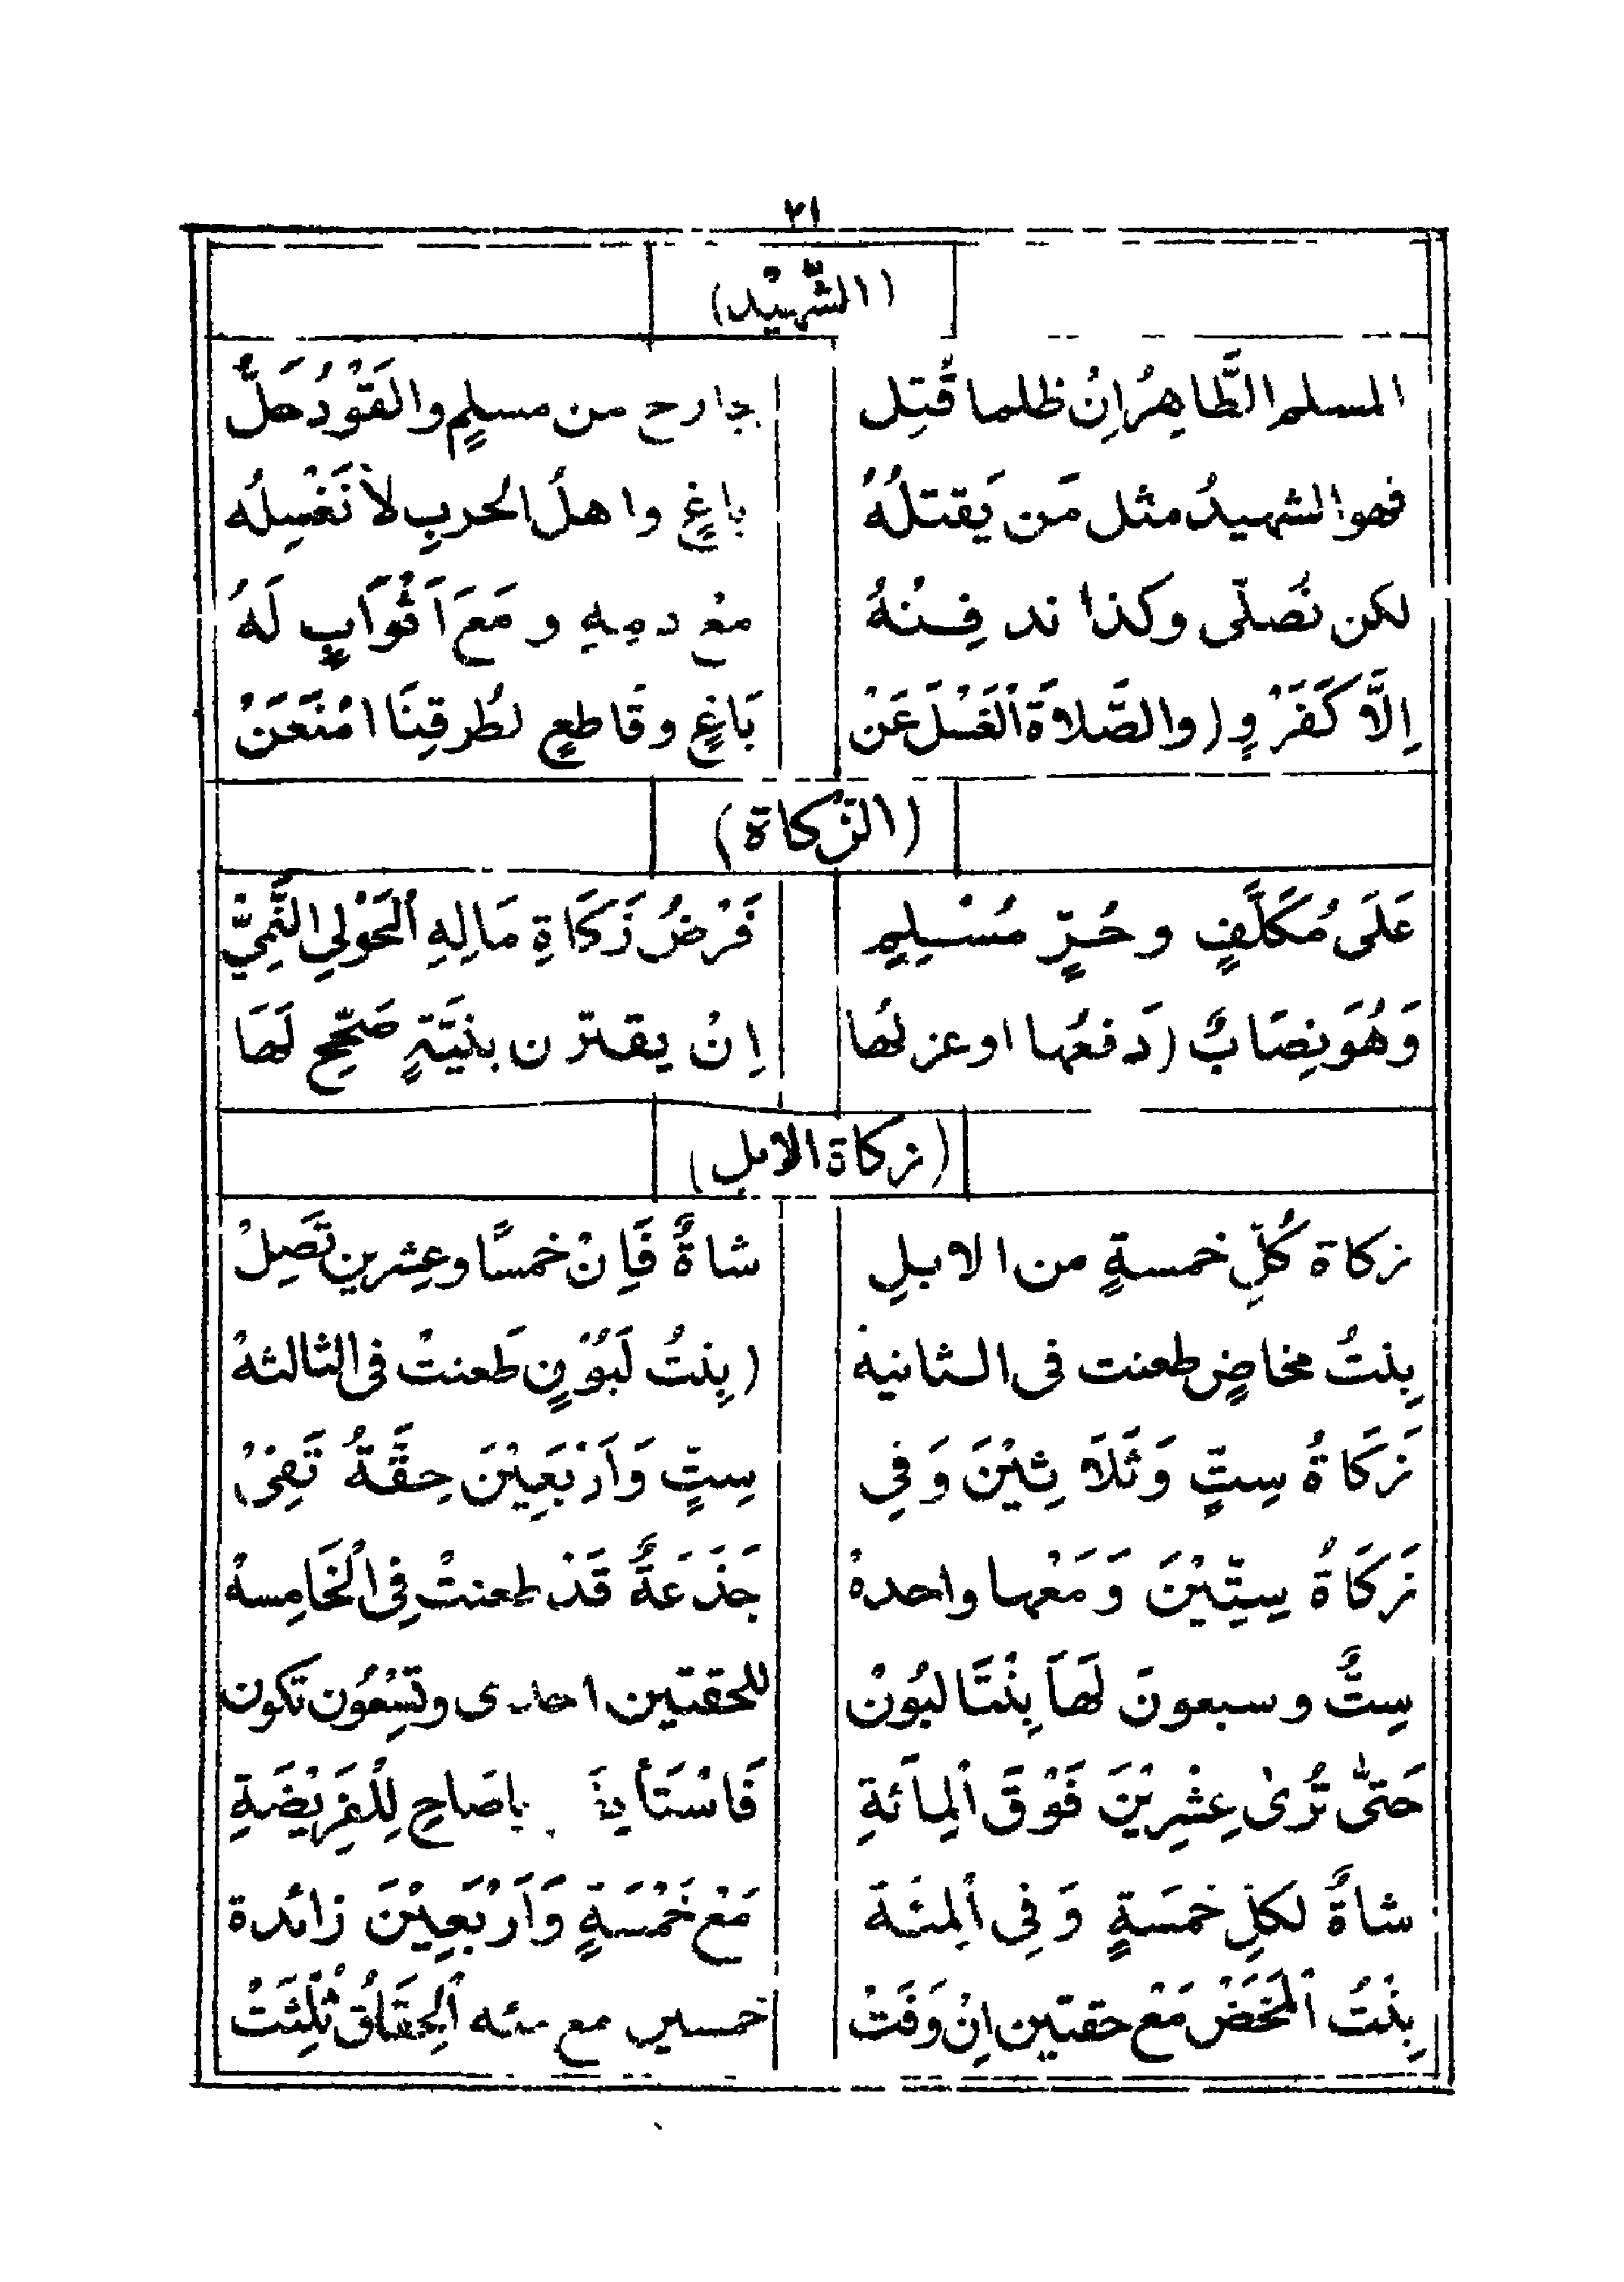 ٢١
(الشَّهِيْد)
المسلم الطَّاهِرُ اِنْ ظلما قُتِل بجارح من مسلمٍ والقَوْدُ حَلَّ
فهو الشهيدُ مثل مَن يَقتلُهُ باغٍ واهلُ الحربِ لاَ نَغْسِلُه
لكن نُصلّى وكذا ندفِنْهُ مَعْ دمِهِ ومَعَ اَثْوَابٍ لَهُ
اِلَّا كَفَرْوٍ (والصَّلاَةَ اْلغَسْلَ عَنْ بَاغٍ وقَاطعٍ لطُرقِنَا امْنَعَنْ
(الزَّكاة)
عَلَى مُكَلَّفٍ وحُرٍّ مُسْلِمٍ فَرْضُ زَكَاةِ مَالِهِ اْلحَوْلِي النَّمِيّ
وَهُوَ نِصَابٌ (دَفعُها او عزلهَا اِنْ يقترن بنيَّةٍ صَحِّحْ لَهَا
(زكاة الابل)
زكاة كُلِّ خمسةٍ من الابلِ شاةٌ فَاِنْ خمسًا وعِشرين تَصِلْ
بِنتُ مخاضٍ طعنت فى الثانيهْ (بِنتُ لَبُوْنٍ طَعنتْ فى الثالثهْ
زَكَاةُ سِتٍّ وَثَلاَثِيْنَ وَفِي سِتٍّ وَاَرْبَعِيْنَ حِقَّةٌ تَفِىْ
زَكَاةُ سِتِّيْنَ وَمَعْها واحدهْ جَذَعَةٌ قَدْ طعنتْ فِى الْخَامِسهْ
سِتٌّ وسبعونَ لَهَا بِنْتَا لبُوْنْ للحقتين احدى وتِسْعُون تكون
حَتىّٰ تُرىٰ عِشْرِيْنَ فَوْقَ اْلمِائَةِ فَاسْتَأ ياصَاحِ لِلْفَرِيْضَةِ
شاةٌ لكلِّ خمسَةٍ وَفِى اْلمِئَة مَعْ خَمْسَةٍ وَاَرْبَعِيْنَ زائدة
بِنْتُ اْلمَخَضْ مَعْ حقتين اِنْ وَفَتْ خمسين مع مئه اْلحِقَاقُ ثُلِّثَتْ